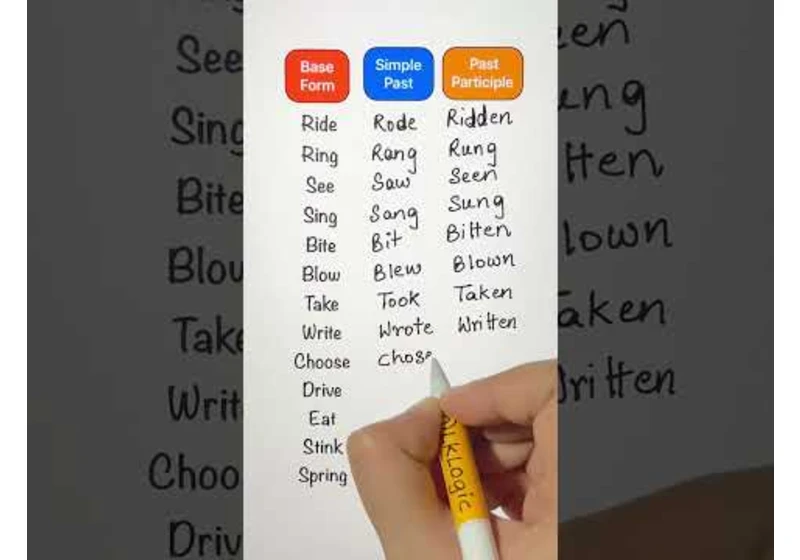 Base Form Simple Past Past Participle
Ride Rode Ridden
Ring Rang Rung
See Saw Seen
Sing Sang Sung
Bite Bit Bitten
Blow Blew Blown
Take Took Taken
Write Wrote Written
Choose Chose
Drive
Eat
Stink
Spring